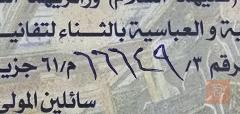 السلام)
ية و العباسية بالثناء لتفانيـ
رقم ٣/ ٦٦٦٤٩ م/٦١ جزيـ
سائلين المولى